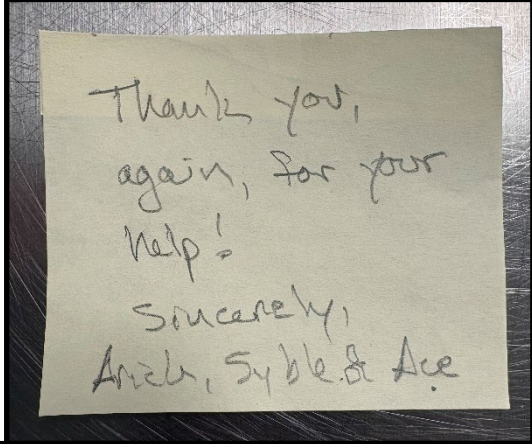 Thank you,
again, for your
help!
Sincerely,
Syble & Ace